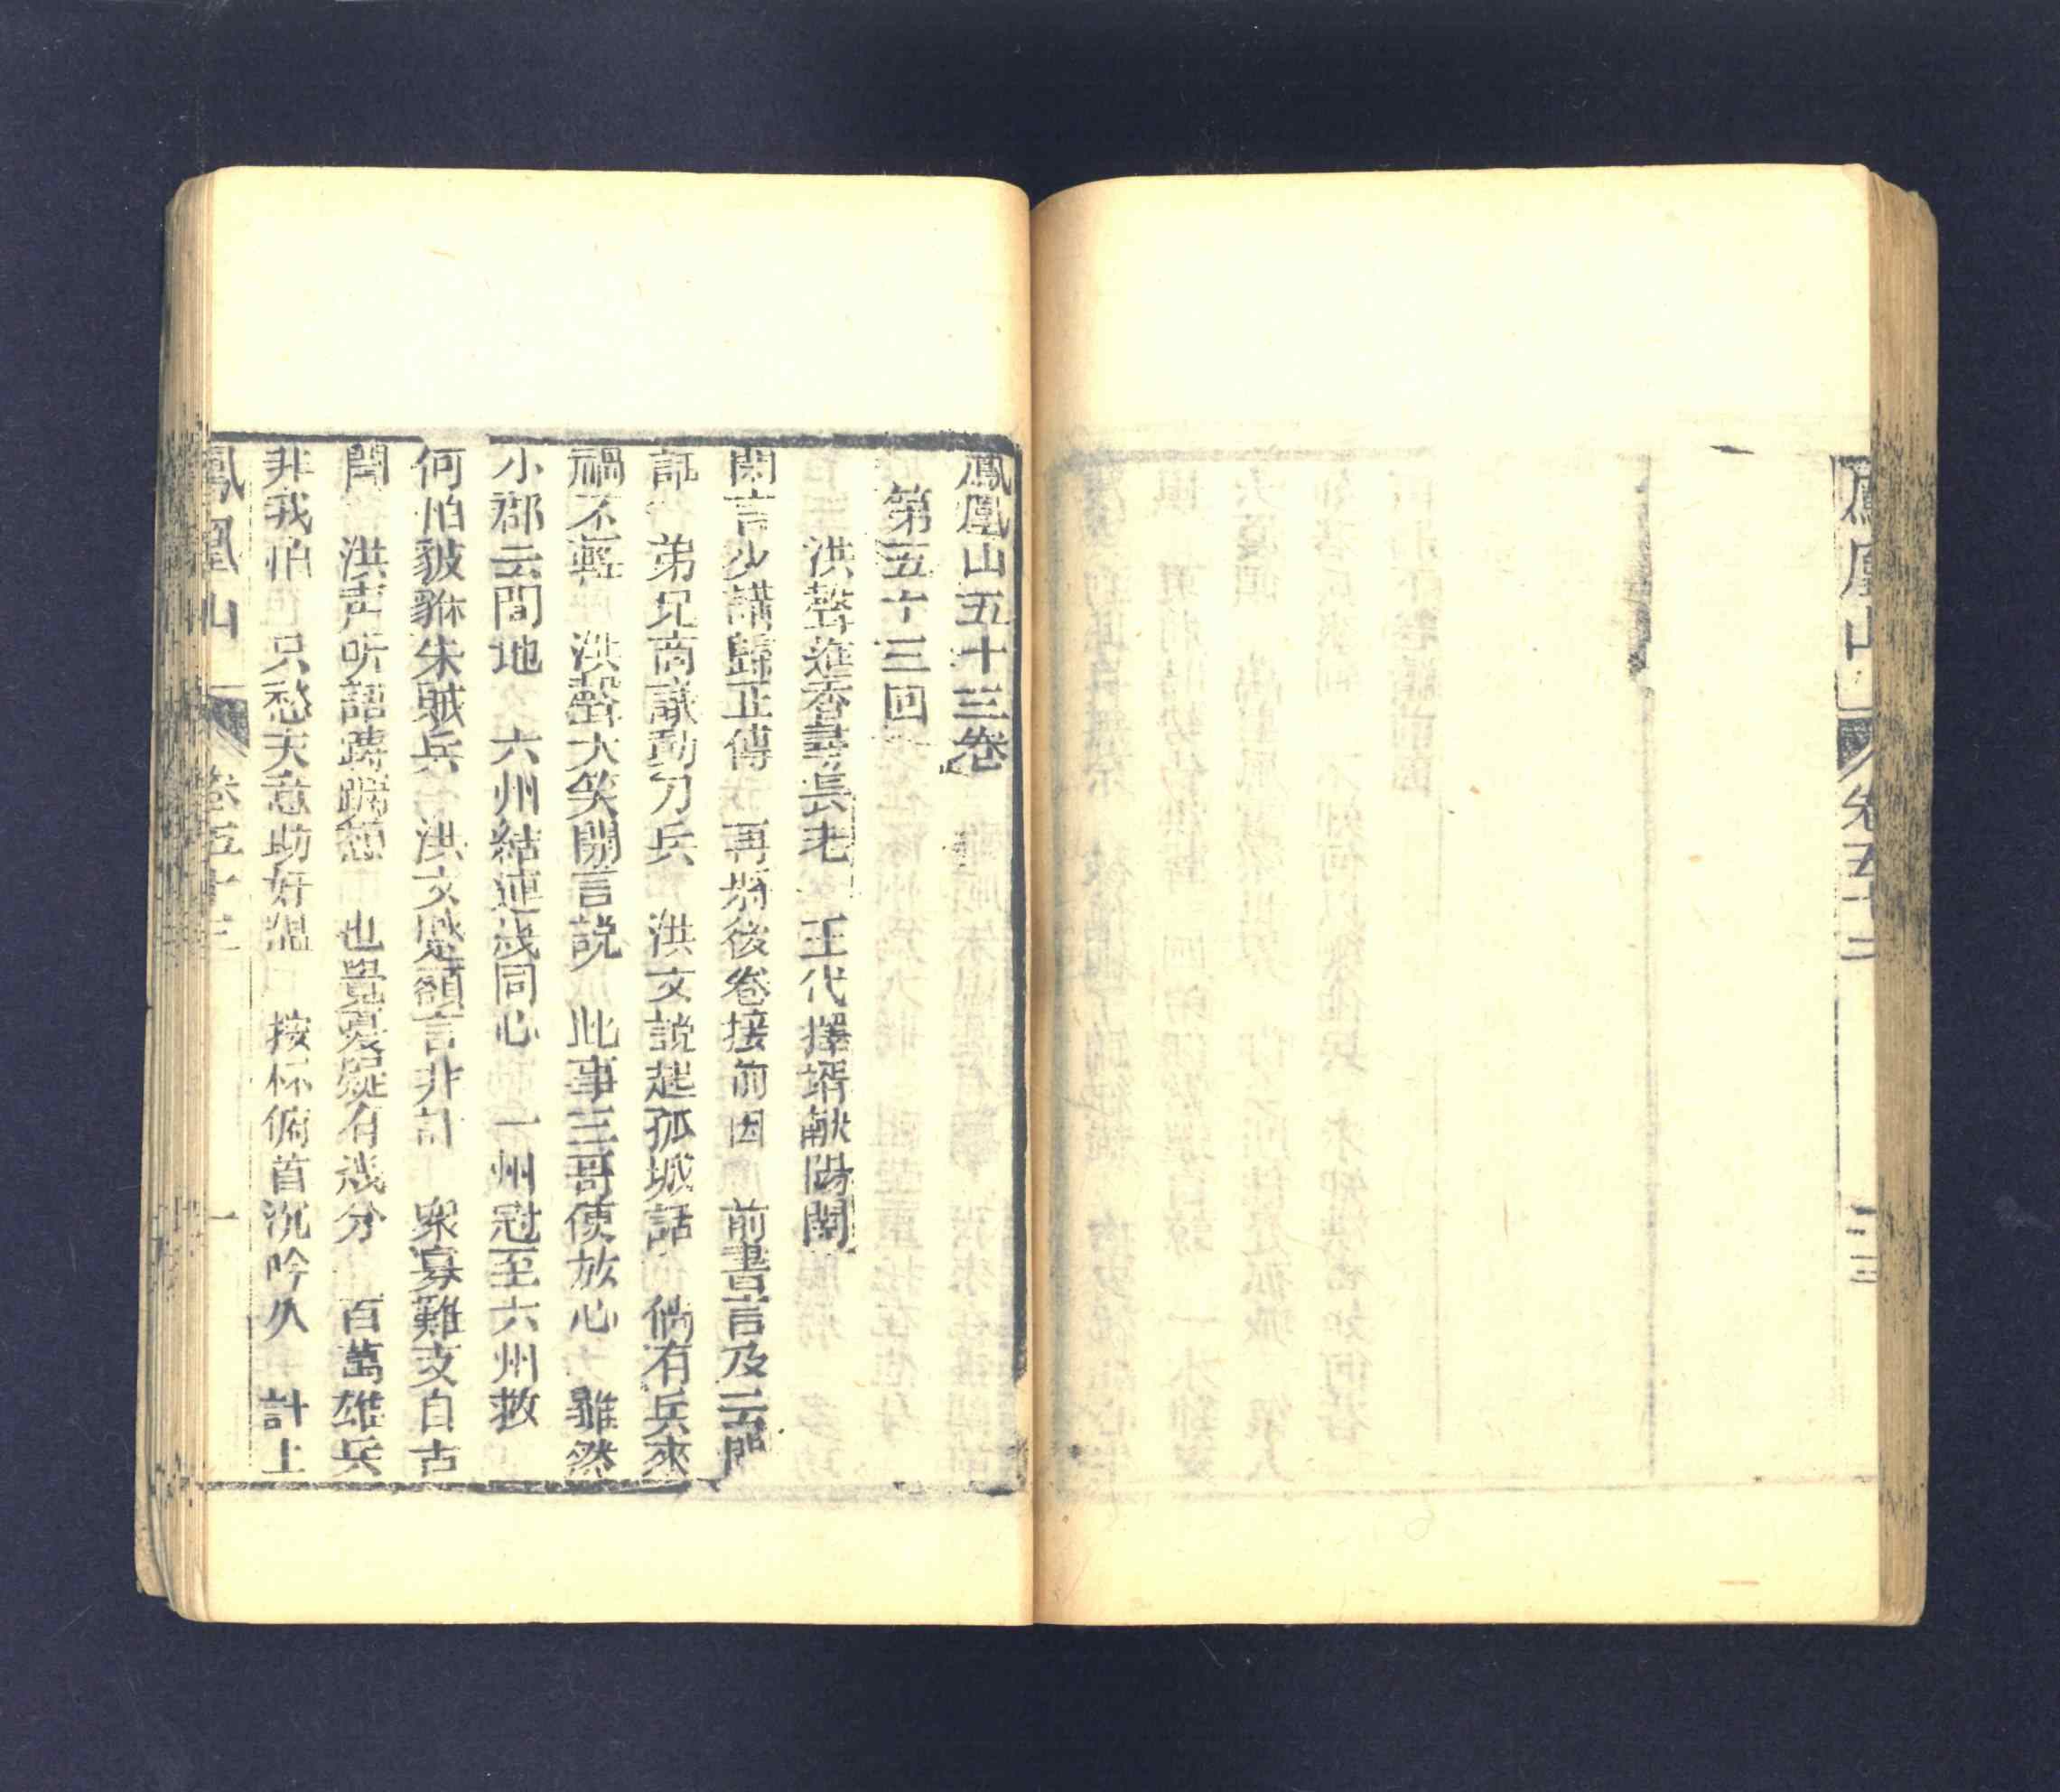 鳳凰山
卷五十二
二十三
鳳凰山五十三卷
第五十三回
洪聲進香尋長老 王代擇壻献陽關
閑言少講歸正傳 再揭後卷接前因 前書言及云間
話 弟兄商議動刀兵 洪文説起孤城話 倘有兵來
禍不輕 洪聲大笑開言説 此事三哥使放心 雖然
小郡云間地 六州結連㡬同心 一州冦至六州救
何怕貔貅朱賊兵 洪文蹙額言非計 衆寡難支自古
聞 洪声听語躊蹰想 也覺憂疑有㡬分 百萬雄兵
非我怕 只愁天意助奸溫 按杯俯首沉吟久 計上
鳳凰山
卷五十三
一